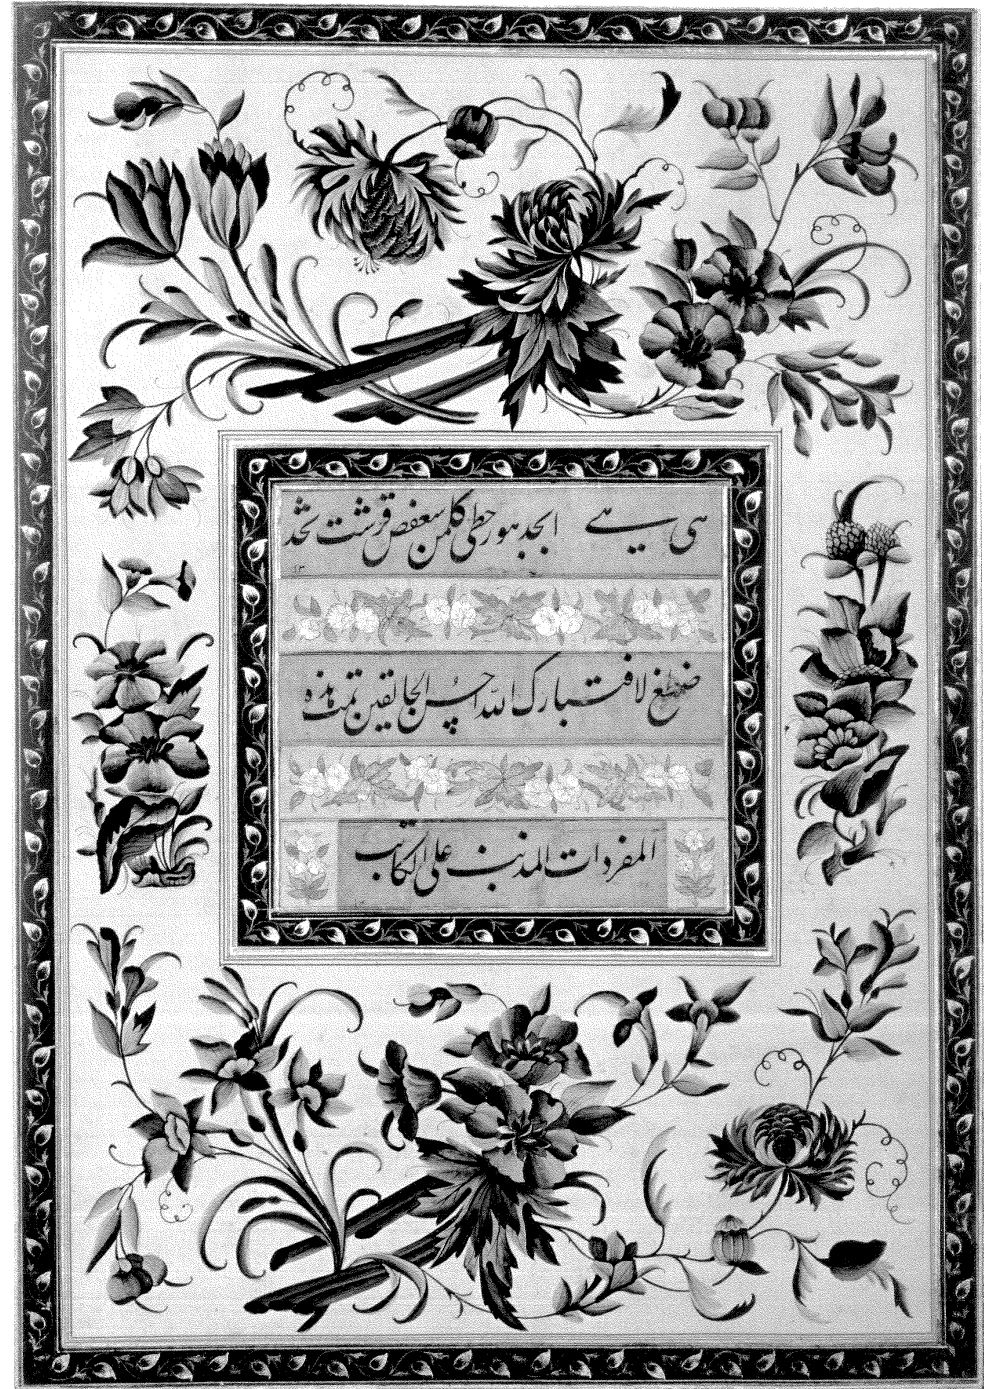 هی سے ے ابجد هوز حطی کلمن سعفص قرشت ثخذ
ضظغ لا فتبارک الله احسن الخالقین تمت هذه
المفردات المذنب علی الکاتب